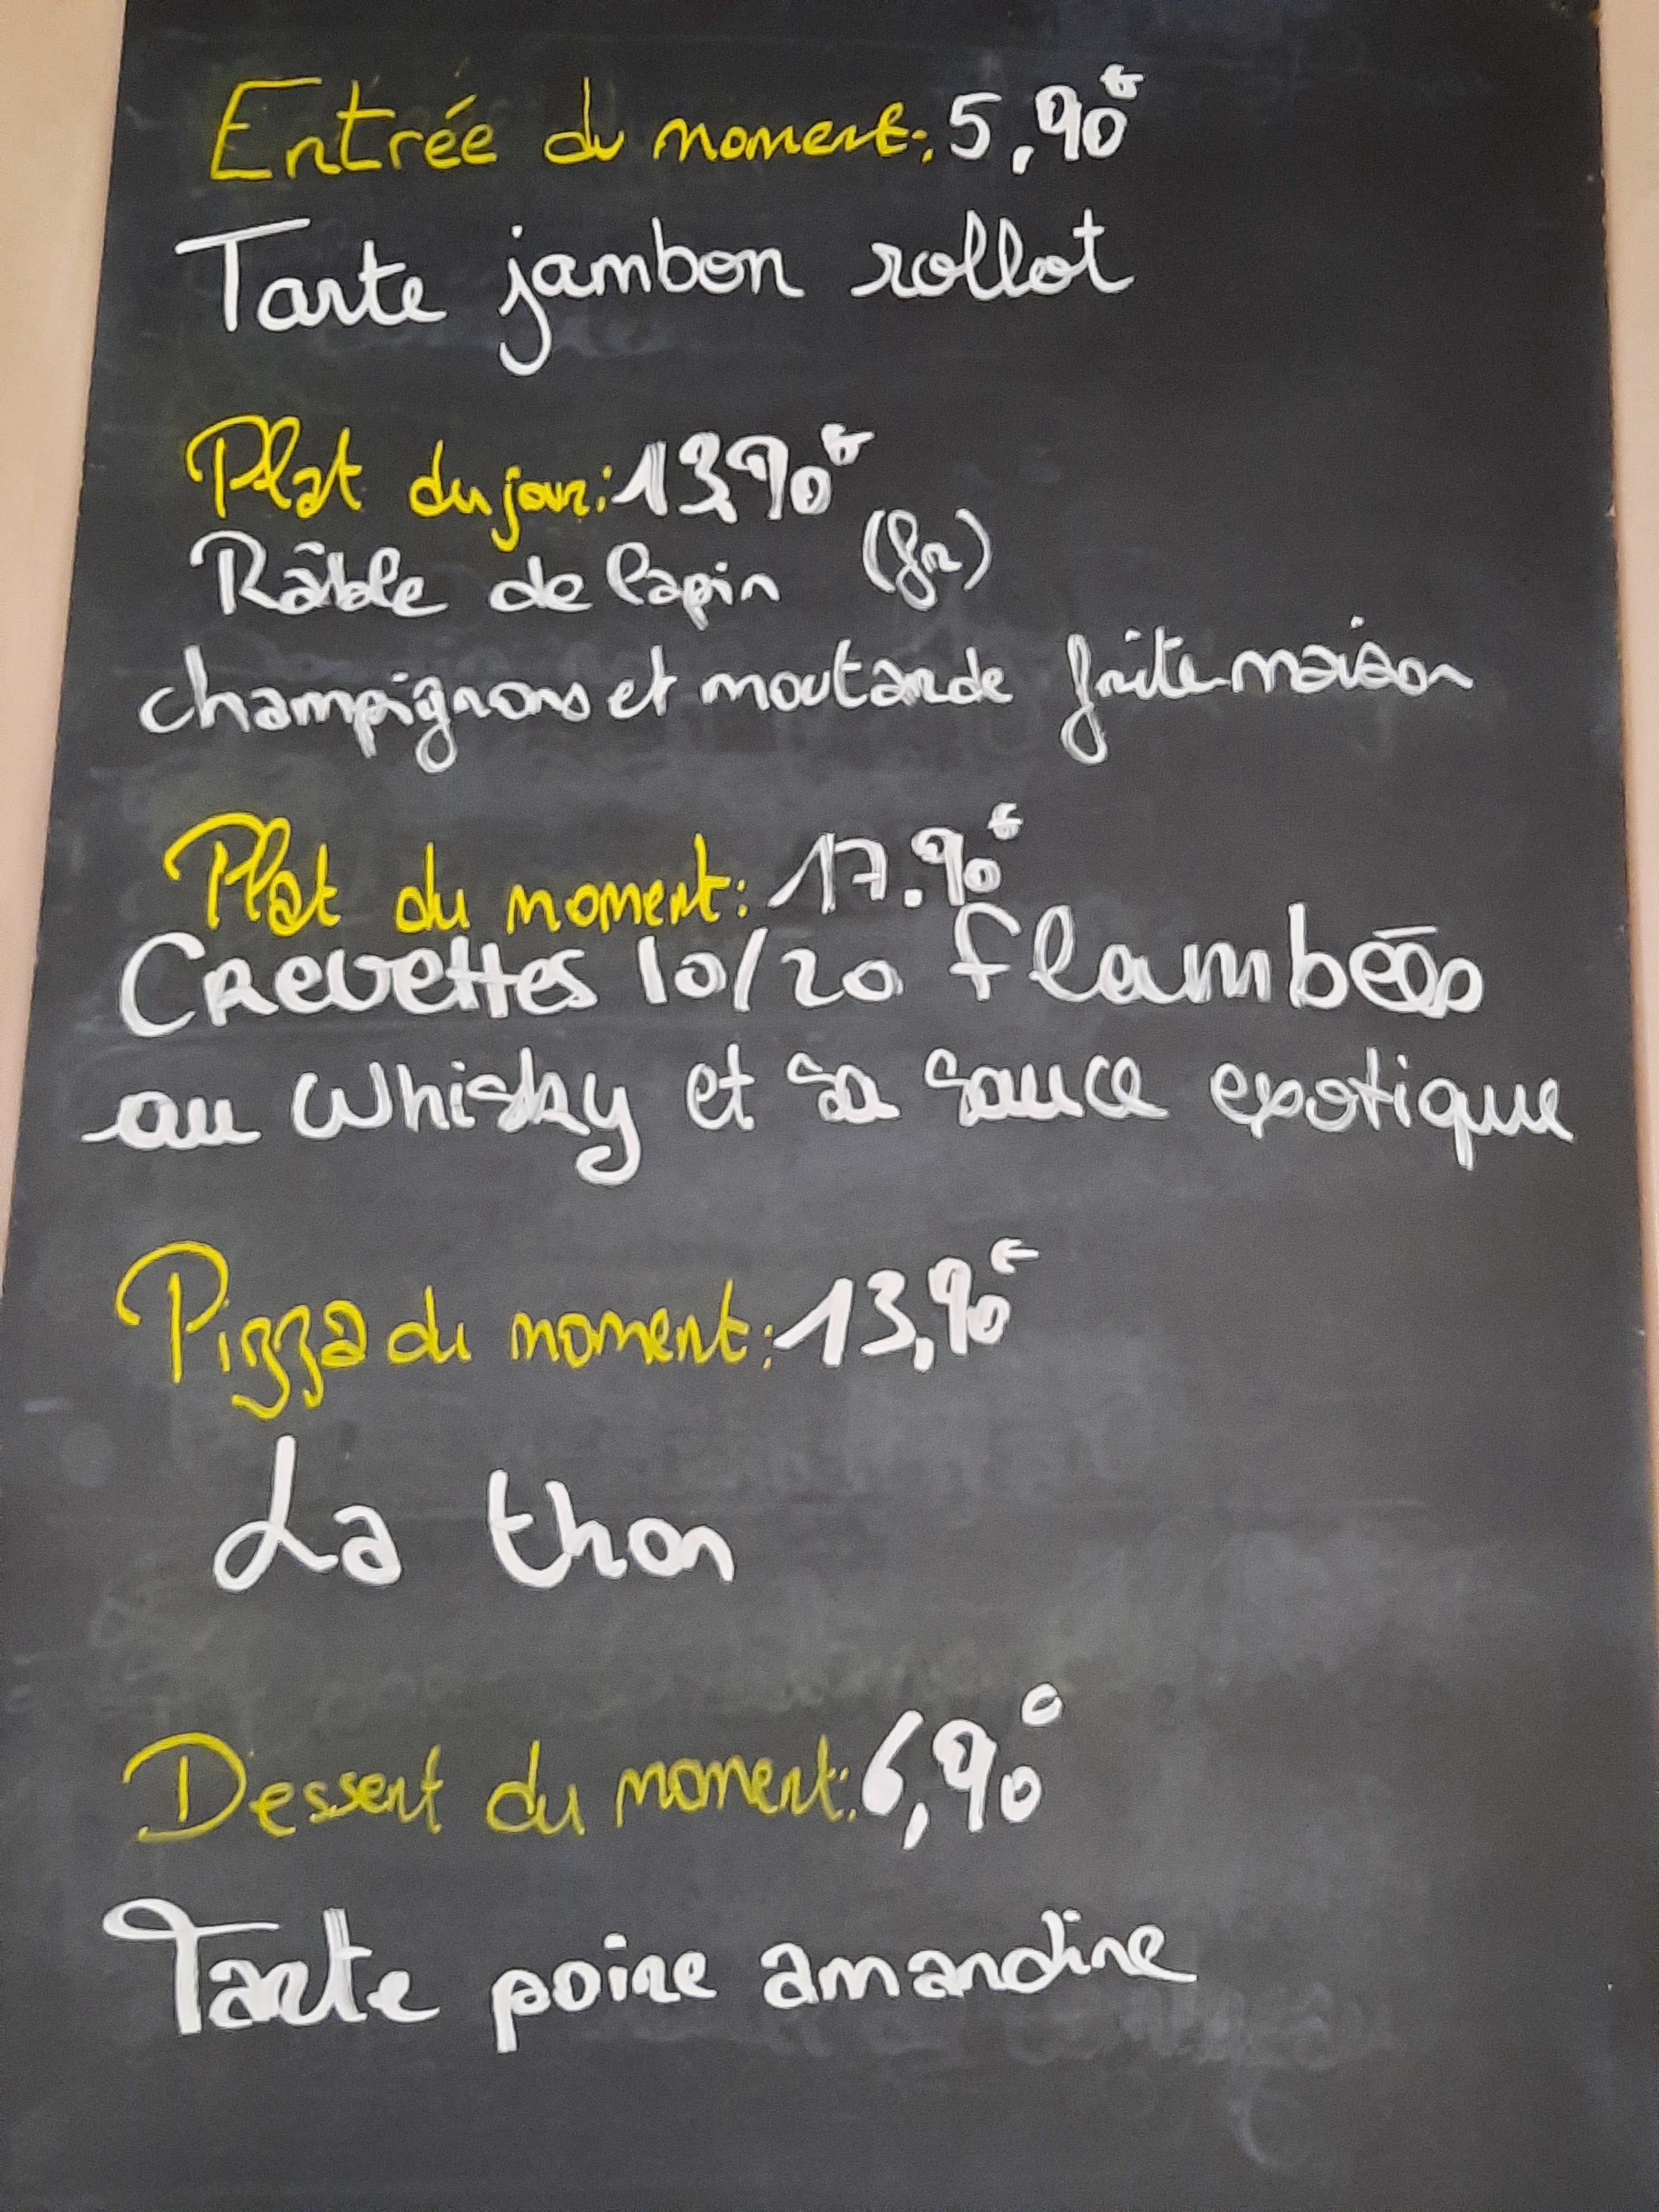 Entrée du moment: 5,90€
Tarte jambon rollot
Plat du jour: 13,90€
Râble de lapin (fr)
champignons et moutarde frite maison
Plat du moment: 17.90€
Crevettes 10/20 flambées
au whisky et sa sauce exotique
Pizza du moment: 13,90€
La thon
Dessert du moment: 6,90€
Tarte poire amandine